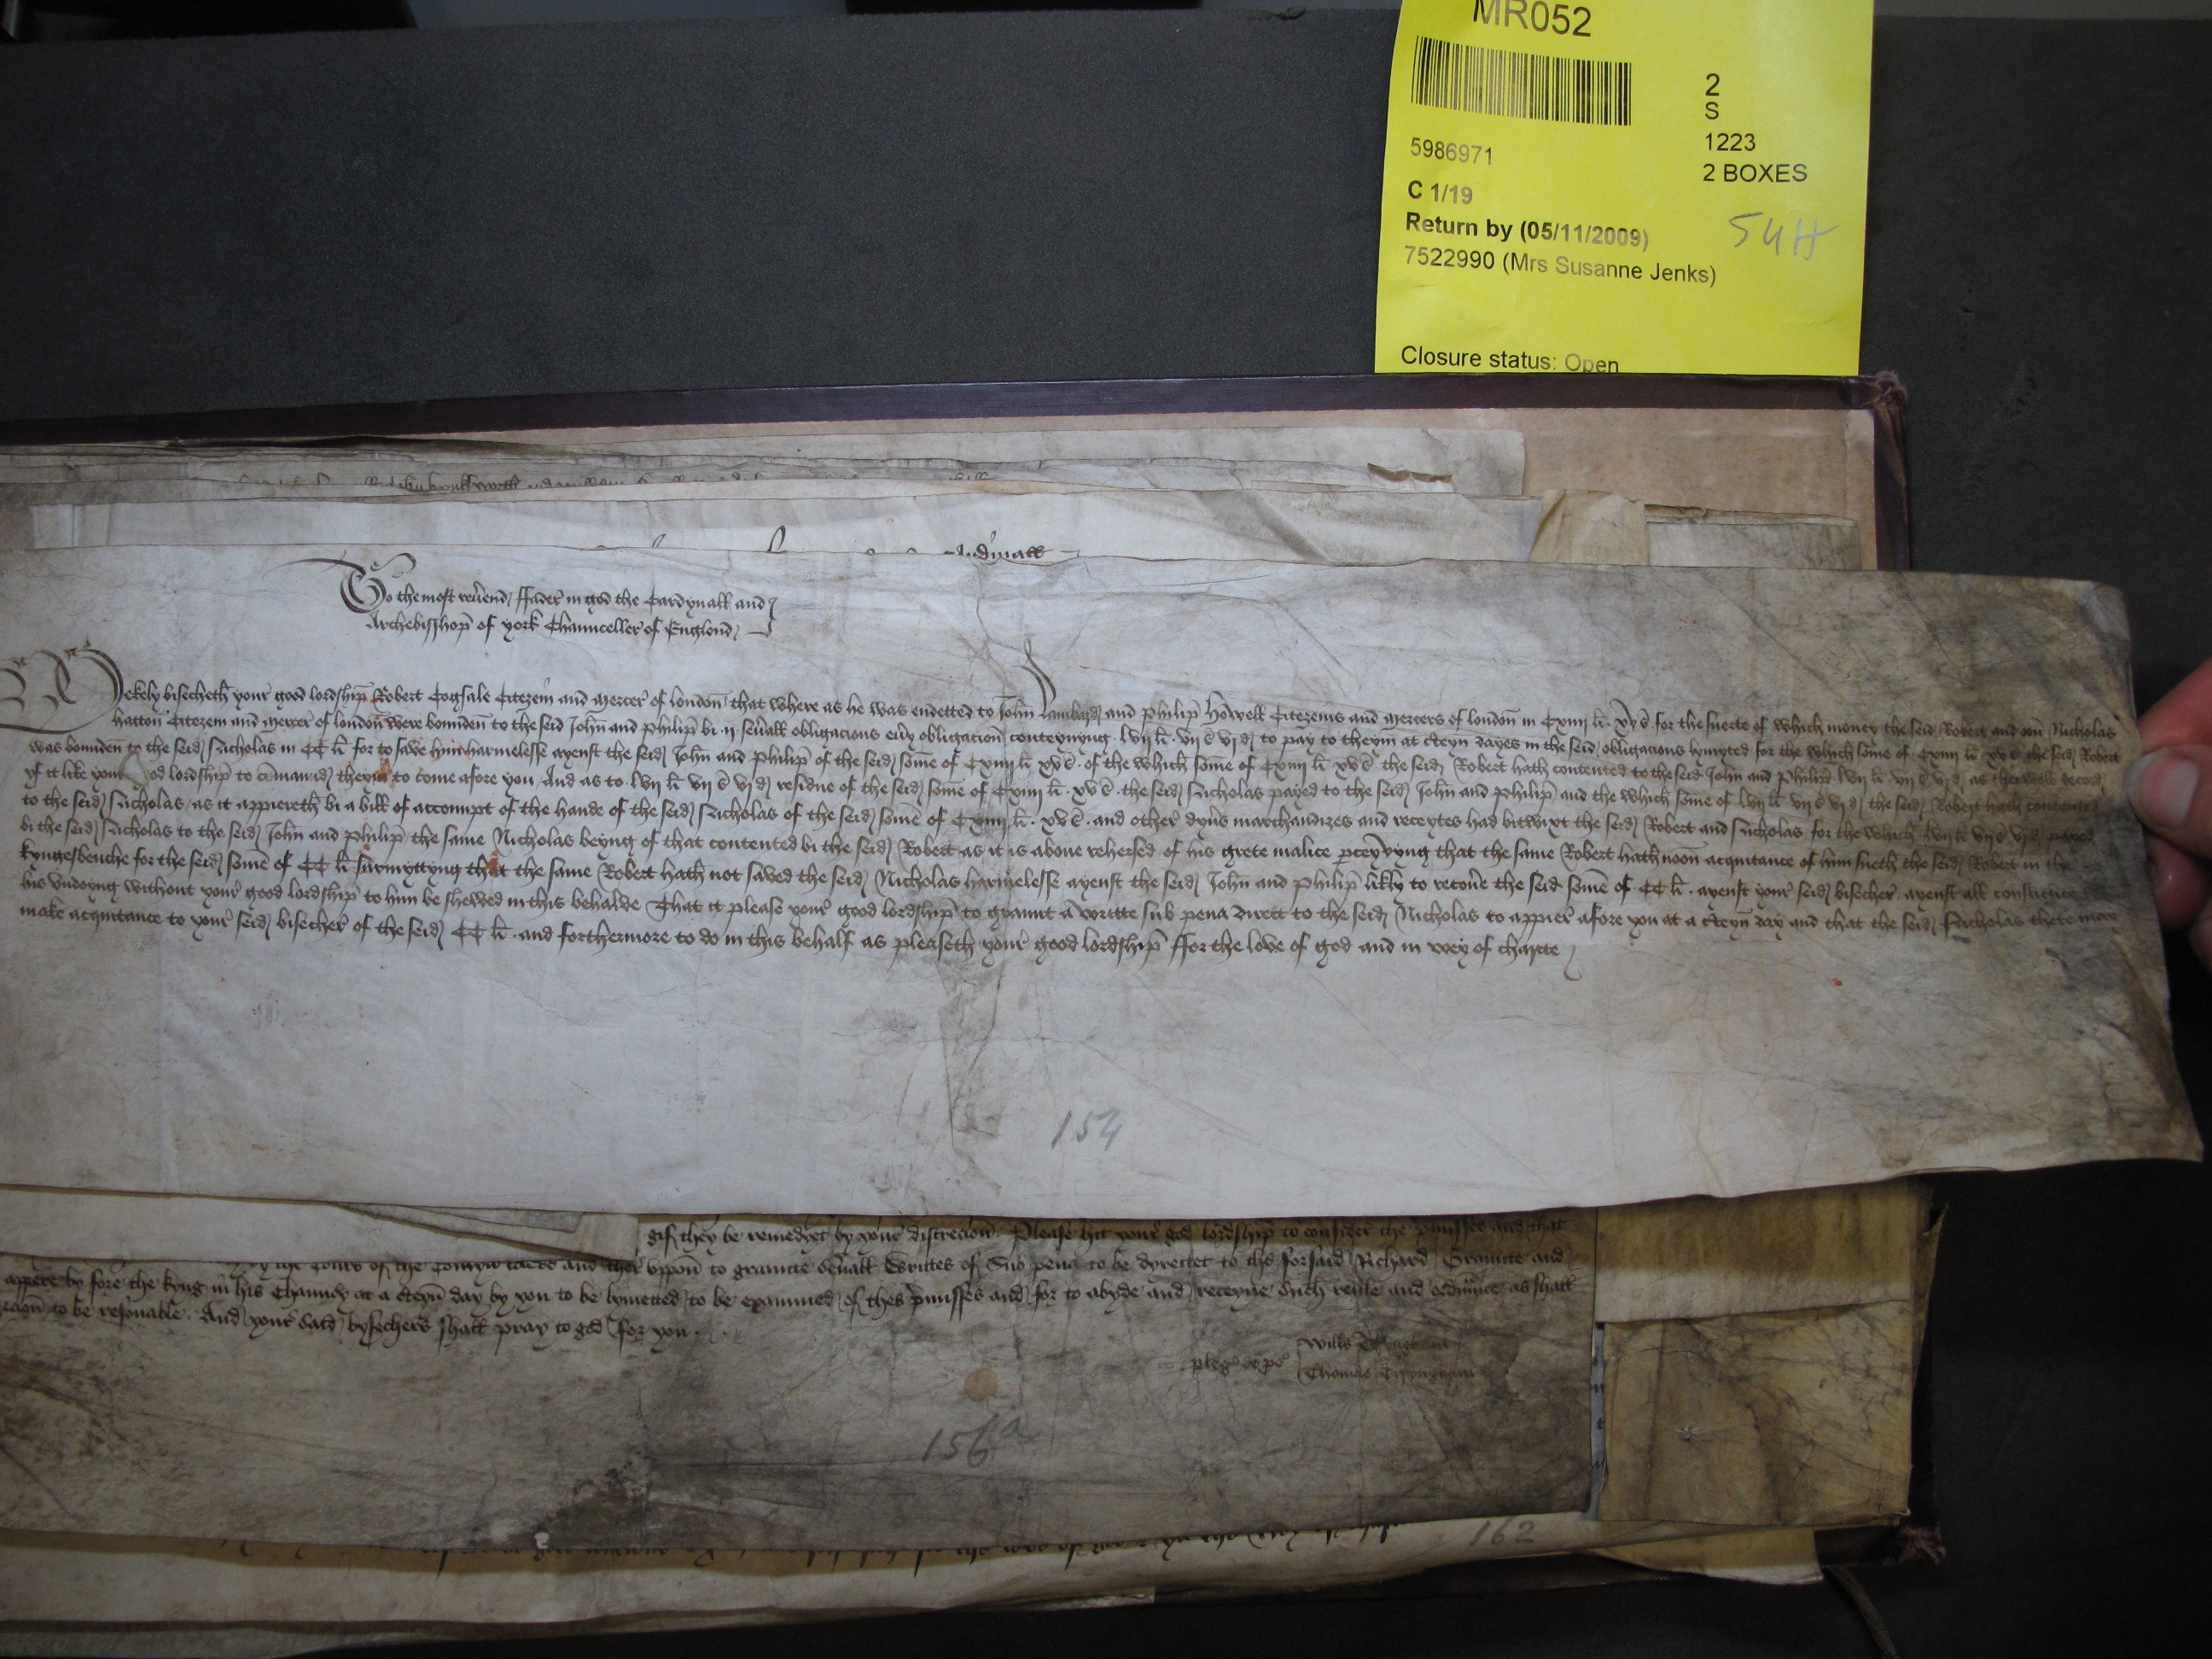 MR052
2
S
5986971
1223
2 BOXES
C 1/19
Return by (05/11/2009)
54H
7522990 (Mrs Susanne Jenks)
Closure status: Open
To the most reu'end ffader in god the Cardynall and
Archebisshop of york Chaunceller of Englond
Mekely bisecheth your good lordship Robert Cogsale Citezein and mercer of london that where as he was endetted to John Lambard and Philip Howell Citezeins and mercers of london in Cxiiij li. xv s for the suerte of which money the seid Robert and oon Nicholas
hatton Citezein and mercer of london were bounden to the seid John and Philip bi ij seu'all obligacions eu'y obligacion conteynyng lvij li. vij s vj d to pay to theym at c'teyn dayes in the seid obligacions lymyted for the which some of Cxiiij li xv s the seid Robert
was bounden to the seid Nicholas in CC li for to save hym harmelesse ayenst the seid John and Philip of the seid some of Cxiiij li xv s. of the which some of Cxiiij li xv s the seid Robert hath contented to the seid John and Philip lvij li vij s vj d as they woll record
yf it like your od lordship to com'aund theym to come afore you And as to lvij li vij s vj d residue of the seid some of Cxiiij li. xv s. the seid Nicholas payed to the seid John and Philip and the which some of lvij li vij s vj d the seid Robert hath contented
to the seid Nicholas as it appiereth bi a bill of accompt of the hande of the seid Nicholas of the seid some of Cxiiij li. xv s. and other dyu's marchaundizes and receytes had bitwixt the seid Robert and Nicholas for the which lvij li vij s vj d payed
bi the seid Nicholas to the seid John and Philip the same Nicholas beyng of that contented bi the seid Robert as it is above rehersed of his grete malice p'ceyvyng that the same Robert hath noon acquitance of hym sueth the seid Robert in the
kyngesbenche for the seid some of CC li surmyttyng that the same Robert hath not saved the seid Nicholas harmelesse ayenst the seid John and Philip likly to recou'e the seid some of CC li. ayenst your seid bisecher ayenst all conscience
his undoyng without your good lordship to him be shewed in this behalve That it please your good lordship to graunt a writte sub pena direct to the seid Nicholas to appier afore you at a c'teyn day and that the seid Nicholas there may
make acquitance to your seid bisecher of the seid CC li. and forthermore to do in this behalf as pleaseth your good lordship ffor the love of god and in wey of charite
154
gif they be remedyet by your discrecion Please hit your god lordship to consider the p'misses and that
and ther uppon to graunte seu'all writtes of Sub pena to be dyrectet to the forsaid Richard Graunte and
appere by fore the kyng in his Chauncy at a c'teyn day by you to be lymetted to be examined of thes p'misses and for to abyde and receyue such reule and ordinnce as shall
to be resonable. And your said bysechers shall pray to god for you.
Wills
pleg de p's
Thomas
156a
162